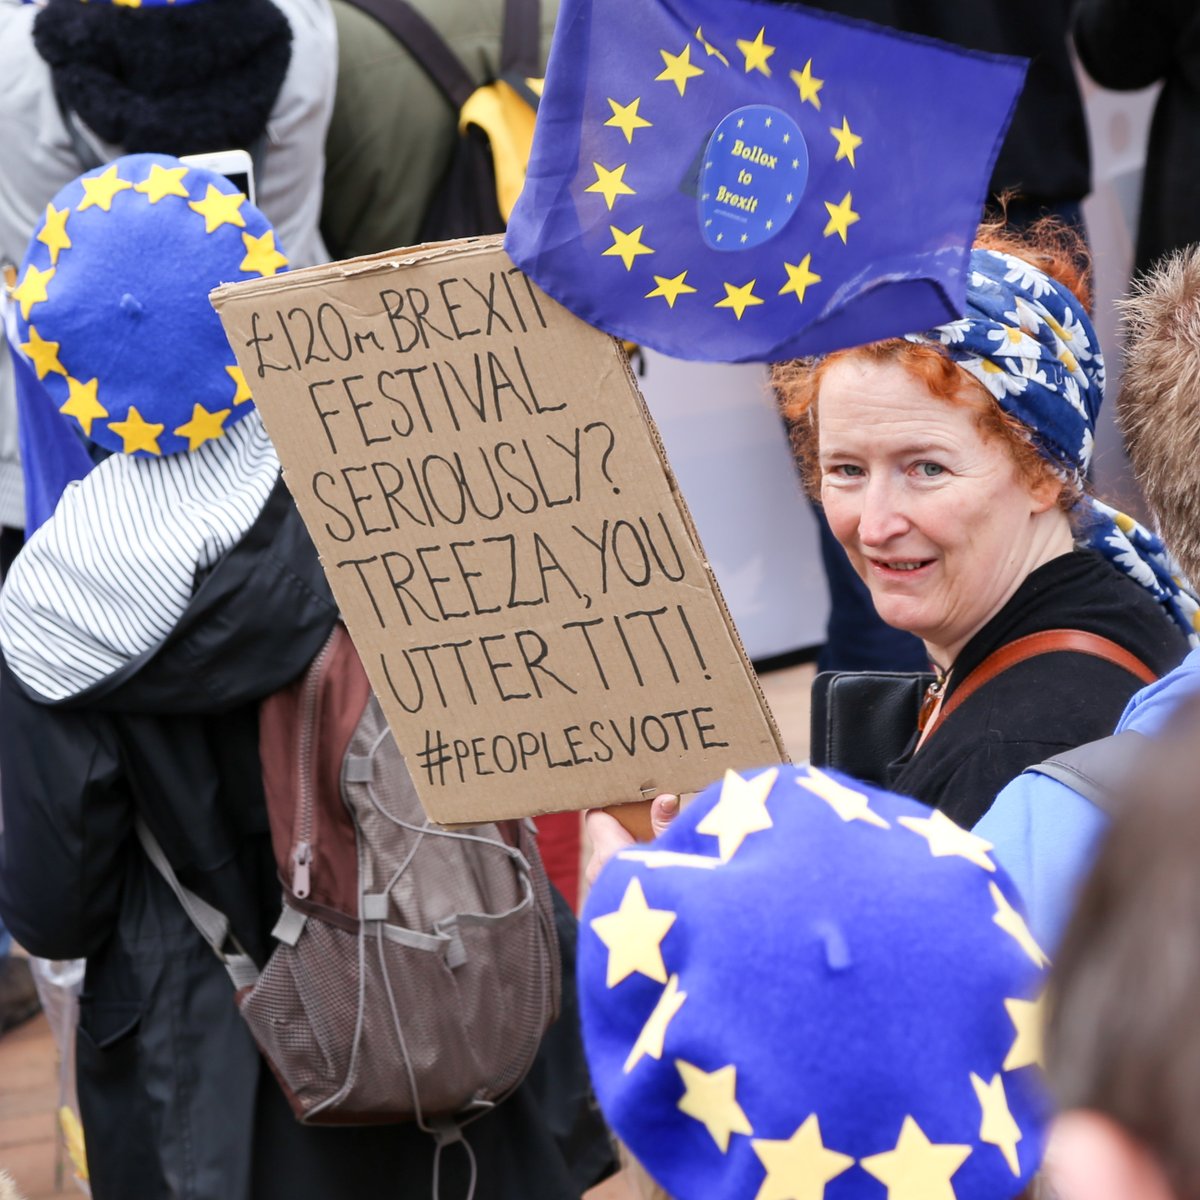 Bollox
to
Brexit
£120m BREXIT
FESTIVAL
SERIOUSLY?
TREEZA, YOU
UTTER TIT!
#PEOPLESVOTE